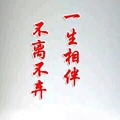 一生相伴
不离不弃